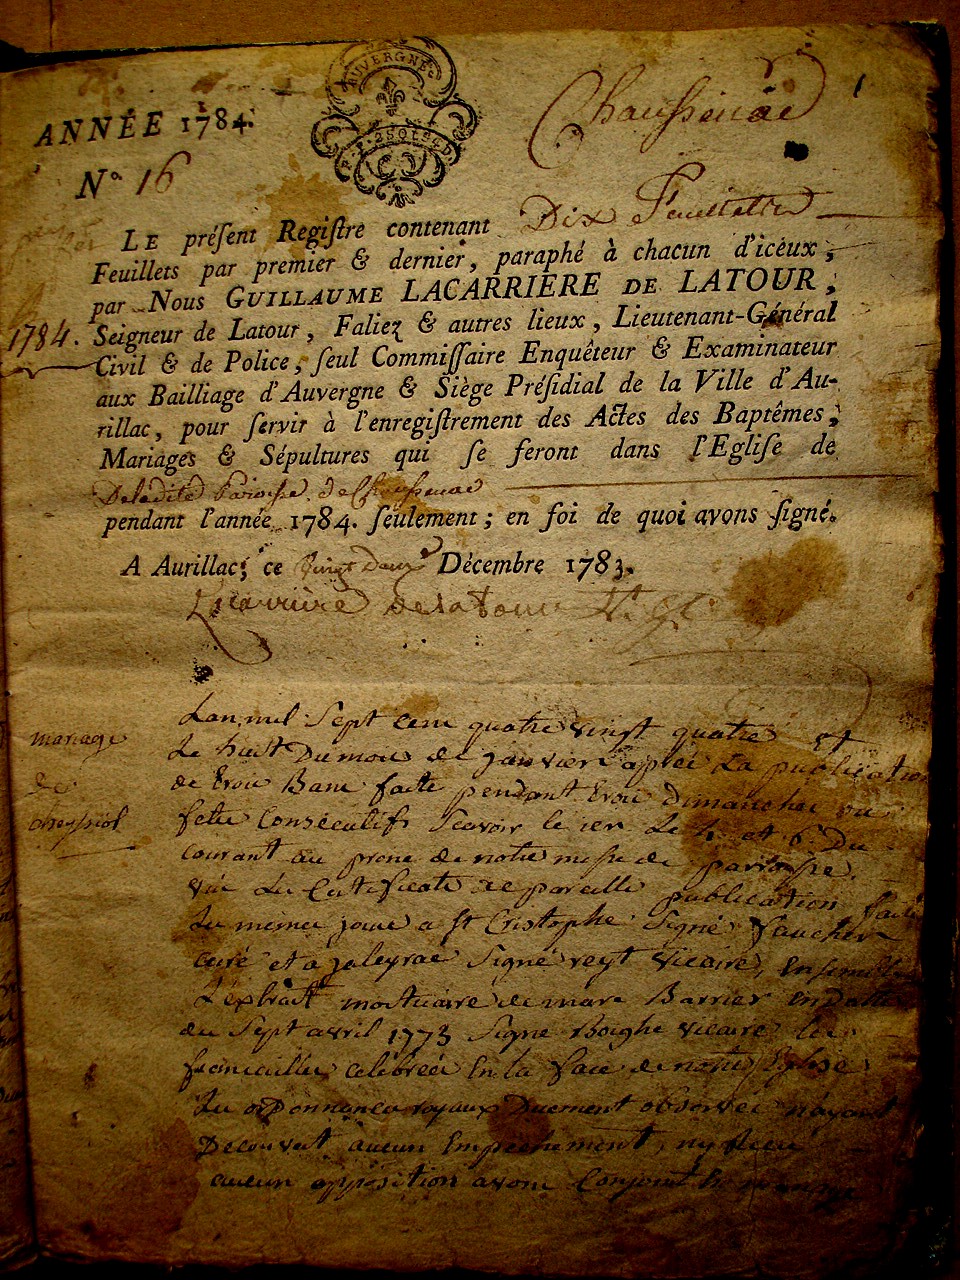 AUVERGNE
Chaussenac
1
ANNÉE 1784.
N° 16
Dix Feuillets
LE préſent Regiſtre contenant
Feuillets par premier & dernier, paraphé à chacun d'iceux,
par Nous GUILLAUME LACARRIERE DE LATOUR,
1784.
Seigneur de Latour, Faliez & autres lieux, Lieutenant-Général
Civil & de Police, ſeul Commiſſaire Enquêteur & Examinateur
aux Bailliage d'Auvergne & Siège Préſidial de la Ville d'Au-
rillac, pour ſervir à l'enregiſtrement des Actes des Baptêmes,
Mariages & Sépultures qui ſe feront dans l'Egliſe de
Deladite Paroisse de Chaussenac
pendant l'année 1784. ſeulement; en foi de quoi avons ſigné.
A Aurillac, ce vingt deux Décembre 1783.
Lacarriere de latour
mariage
de
cheyssiol
Lan mil sept cent quatre vingt quatre et
Le huit Du mois de janvier apres La publication
de trois Banc faite pendant trois dimanches ou
fetes Consecutifs Scavoir le 1er Le 4 et 6 Du
courant au prone de notre messe de parroisse.
vu Les Certificats de pareille publication faite
Les memes jours a St Cristophe Signé faucher
curé et a jaleyrac Signé veyt vicaire, Ensemble
L'extrait mortuaire de marc Barrier En datte
du Sept avril 1773 Signe Boighe vicaire les
fiancailles celebrées En la face de notre Eglise
Les ordonnances royaux Duement observées n'ayant
Decouvert aucun Empechement, ny
aucun opposition avons Conjoint